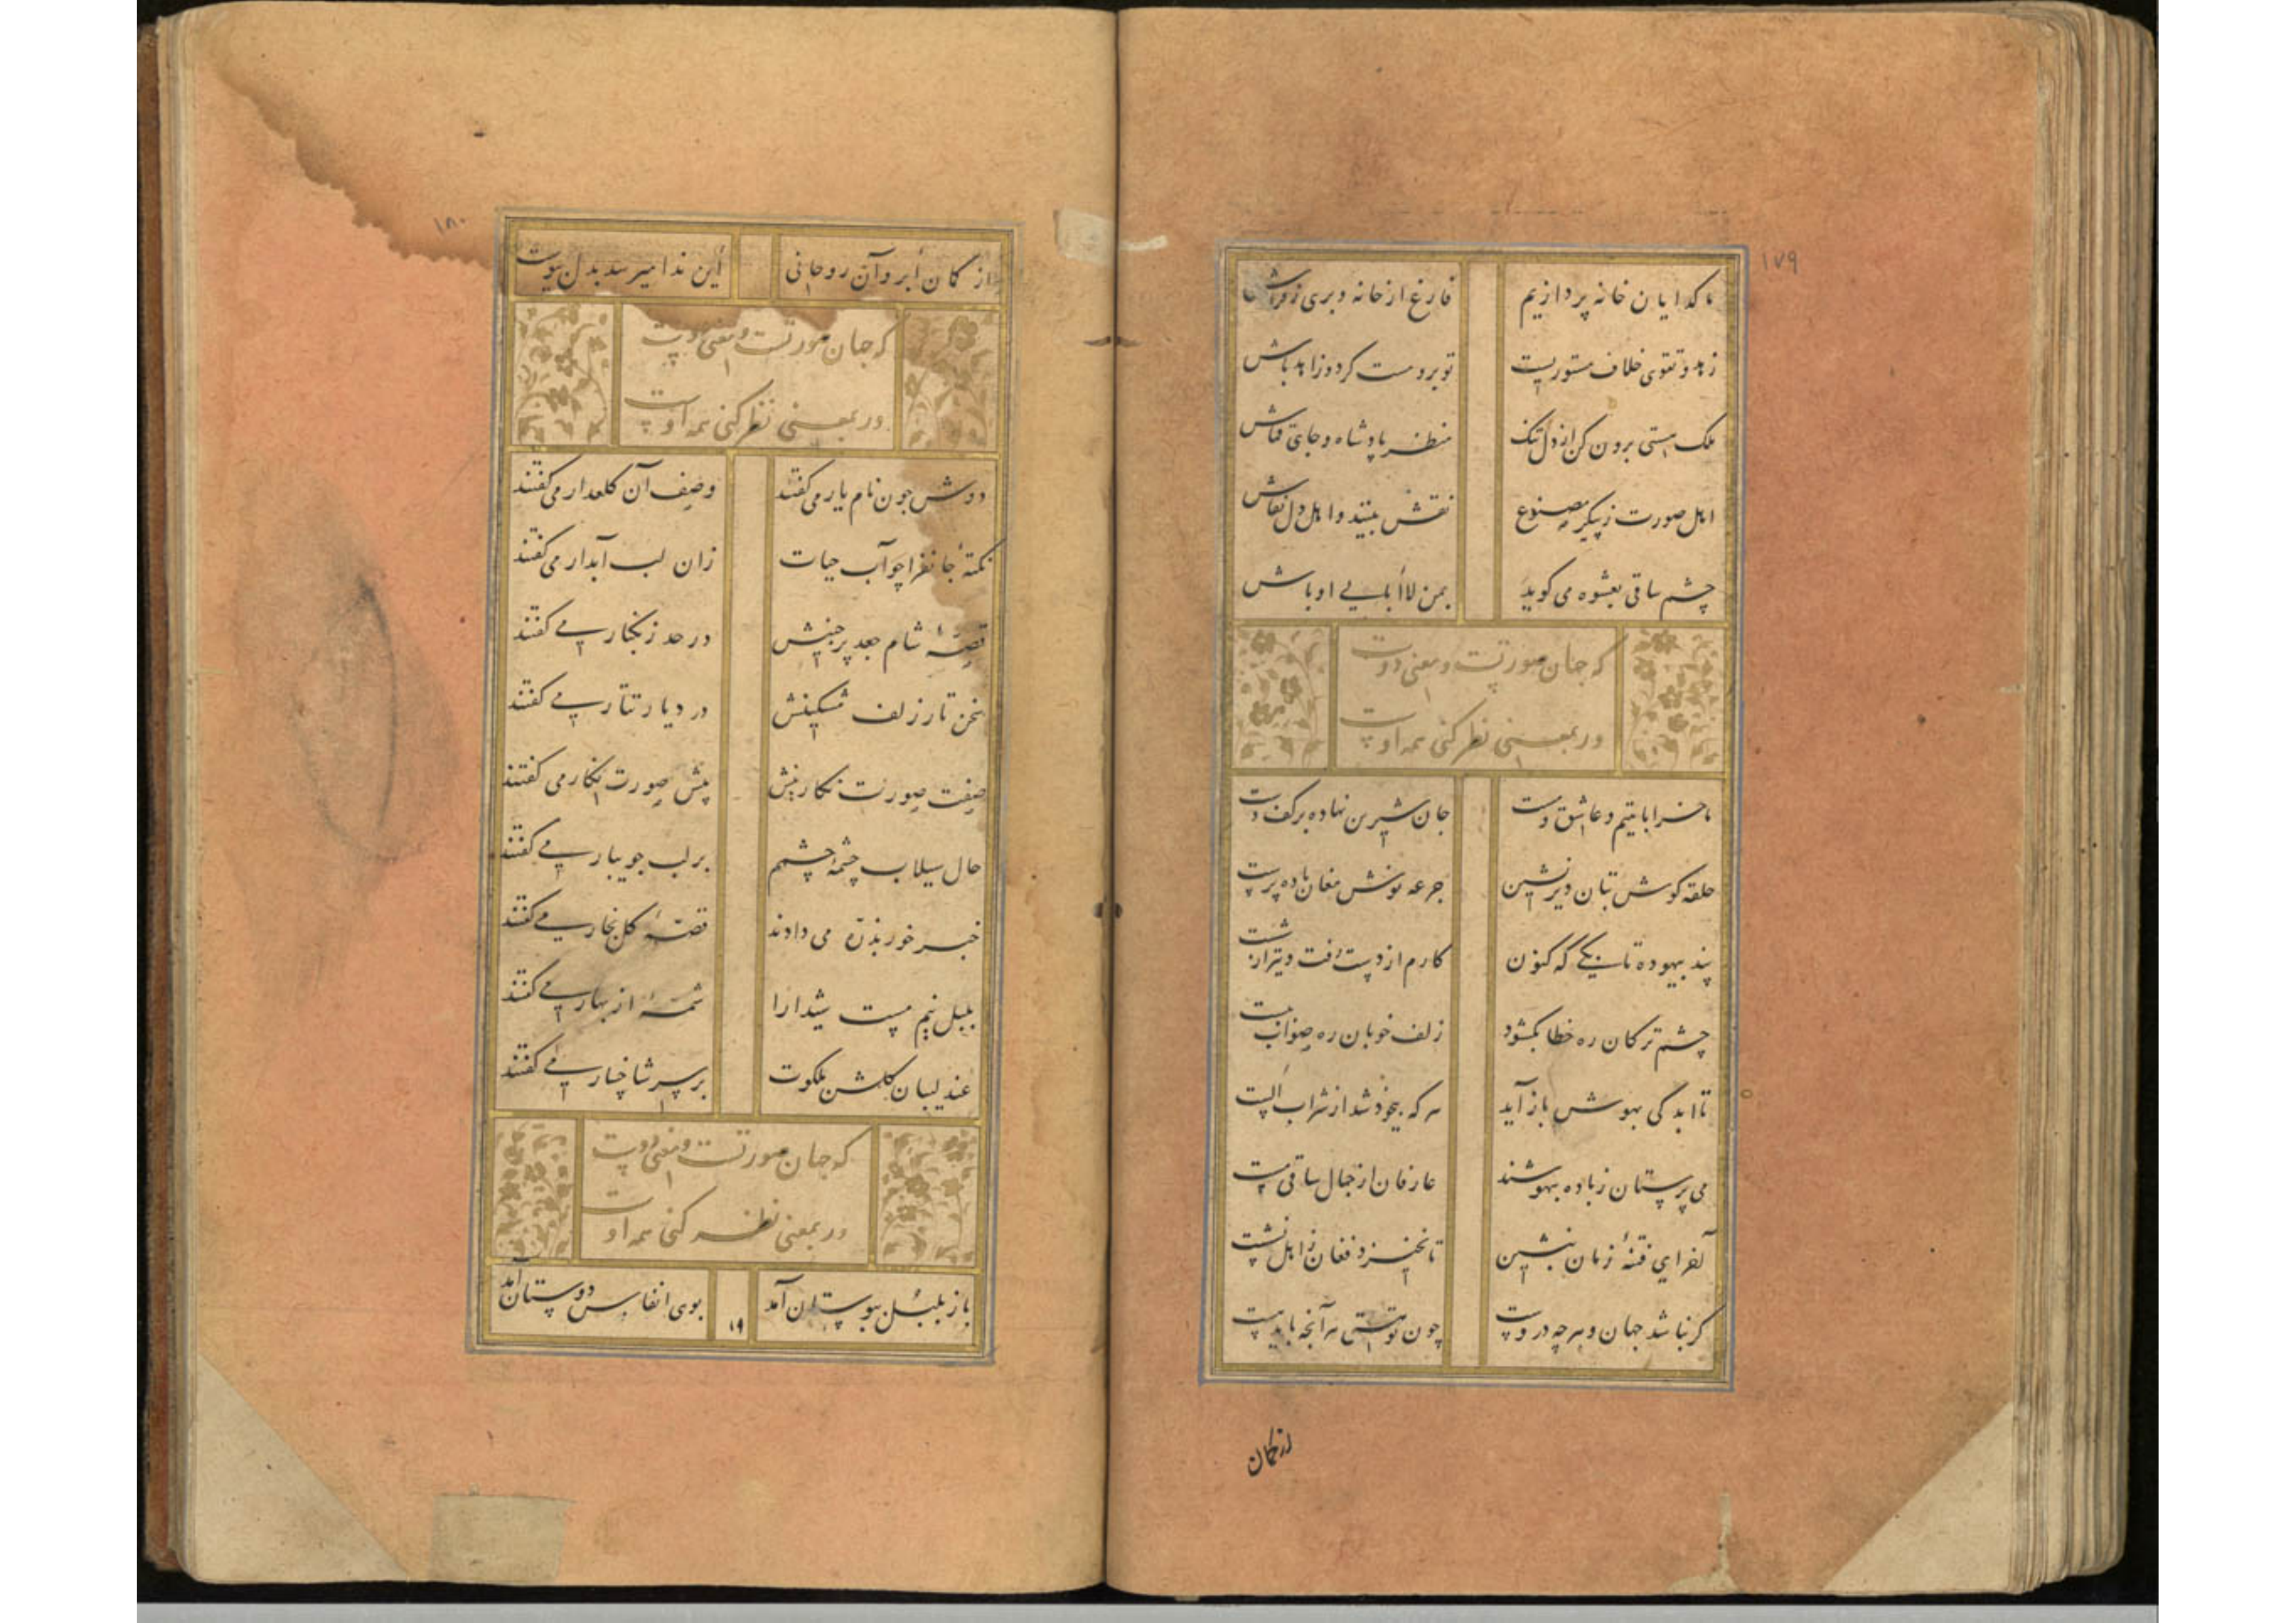 ۱۷۹
ما کدایان خانه پردازیم فارغ از خانه و بری ز فراش
زهد و تقوی خلاف مستوریست تو برو مست کرد و زاهد باش
ملک هستی برون کن از دل تنک منظر پادشاه و جای قماش
اهل صورت ز پیکر مصنوع نقش بینند و اهل دل نقاش
چشم ساقی بعشوه می کوید بمن لاابالیی اوباش
که جهان صورتست و معنی دوست
ور بمعنی نظر کنی همه اوست
ما خراباتییم و عاشق و مست جان شیرین نهاده بر کف دست
حلقه کوش بتان دیرنشین جرعه نوش مغان باده پرست
پند بیهوده تا بکی که کنون کارم از دست رفت و تیر از شست
چشم ترکان ره خطا بکشود زلف خوبان ره صواب ببست
تا ابد کی بهوش باز آید هر که بیخود شد از شراب الست
می پرستان ز باده بیهوشند عارفان از جمال ساقی مست
آخر ای فتنهٔ زمان بنشین تا نخیزد فغان ز اهل نشست
کر نباشد جهان و هرچه دروست چون تو هستی هر آنچه باید هست
از کمان
۱۸۰
از کمان ابروان روحانی این ندا میرسد بدل پیوست
که جهان صورتست و معنی دوست
ور بمعنی نظر کنی همه اوست
دوش چون نام یار می کفتند وصف آن کلعذار می کفتند
نکتهٔ جانفزا چو آب حیات زان لب آبدار می کفتند
قصهٔ شام جعد پرچینش در حد زنکبار می کفتند
سخن تار زلف مشکینش در دیار تتار می کفتند
صفت صورت نکارینش پیش صورت نکار می کفتند
حال سیلاب چشمهٔ چشمم بر لب جویبار می کفتند
خبر خور بذره می دادند قصهٔ کل بخار می کفتند
بلبل نیم مست شیدا را شمهٔ از بهار می کفتند
عندلیبان کلشن ملکوت بر سر شاخسار می کفتند
که جهان صورتست و معنی دوست
ور بمعنی نظر کنی همه اوست
باز بلبل ببوستان آمد ۱۹ بوی انفاس دوستان آمد